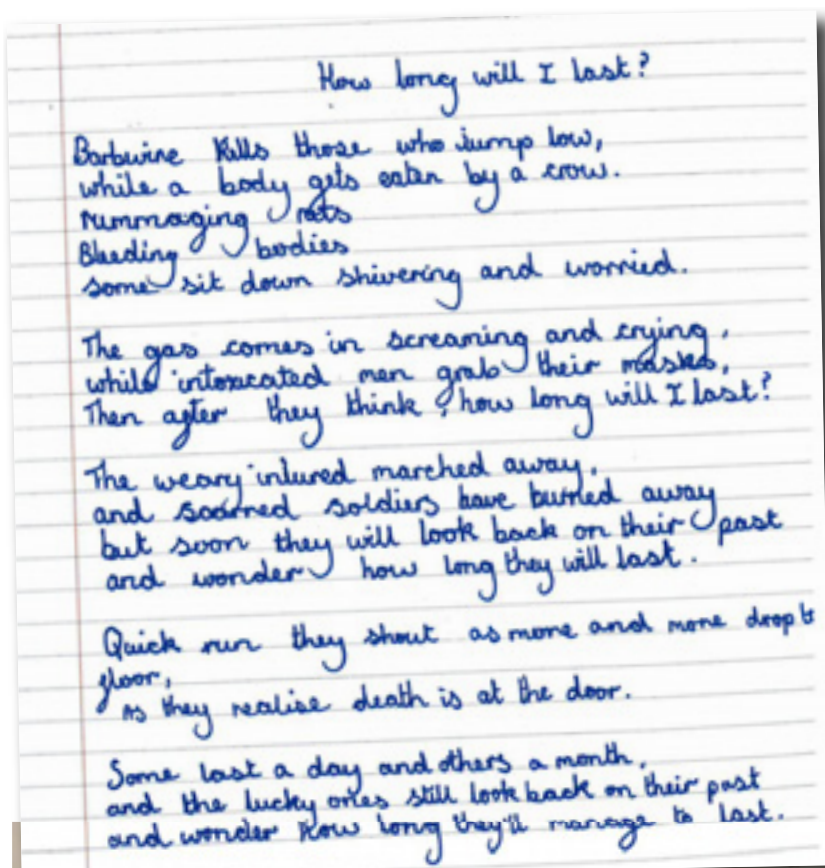 How long will I last?
Barbwire kills those who jump low,
while a body gets eaten by a crow.
rummaging rats
Bleeding bodies
some sit down shivering and worried.
The gas comes in screaming and crying,
while intoxicated men grab their masks,
Then after they think, how long will I last?
The weary injured marched away,
and soarned soldiers have burried away
but soon they will look back on their past
and wonder how long they will last.
Quick run they shout as more and more drop to
floor,
As they realise death is at the door.
Some last a day and others a month,
and the lucky ones still look back on their past
and wonder how long they'll manage to last.